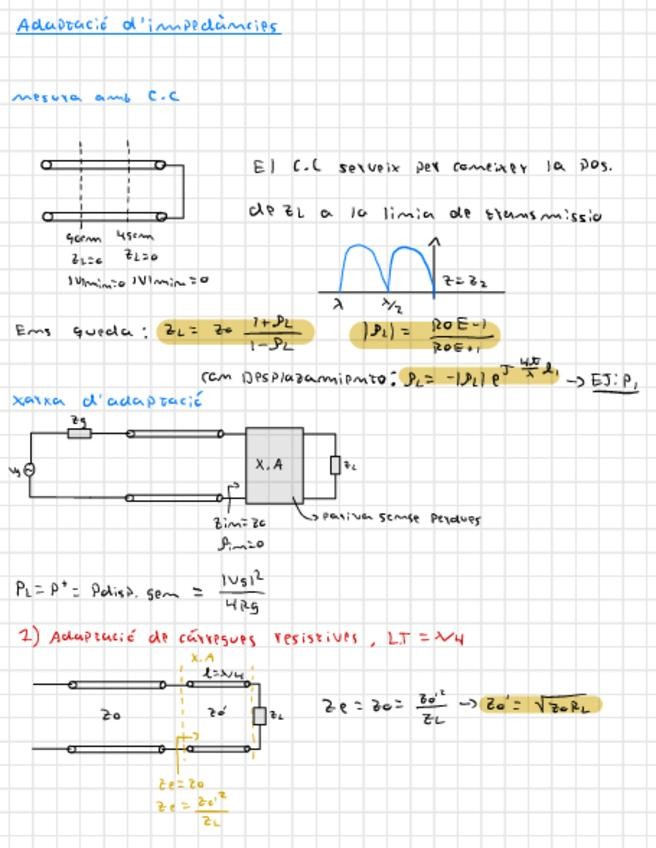 Adaptació d'impedàncies
mesura amb C.C
El C.C serveix per coneixer la pos.
de ZL a la linia de transmissio
40cm 45cm
ZL=0 ZL=0
|V|min=0 |V|min=0
λ λ/2 Z=Z2
Ens queda: ZL = Z0 (1+ρL)/(1-ρL) |ρL| = (ROE-1)/(ROE+1)
Com Desplazamiento: ρL = -|ρL| e^(J 4π/λ l1) → EJ: P1
xarxa d'adaptació
Zg
Vg
X.A
ZL
Zin=Z0
ρin=0
pasiva sense perdues
PL = P+ = Pdisp. gen = |Vg|²/4Rg
1) Adaptació de càrregues resistives, LT = λ/4
X.A
l=λ/4
Z0 Z0' ZL
Ze = Z0 = Z0'²/ZL → Z0' = √Z0RL
Ze=Z0
Ze = Z0'²/ZL